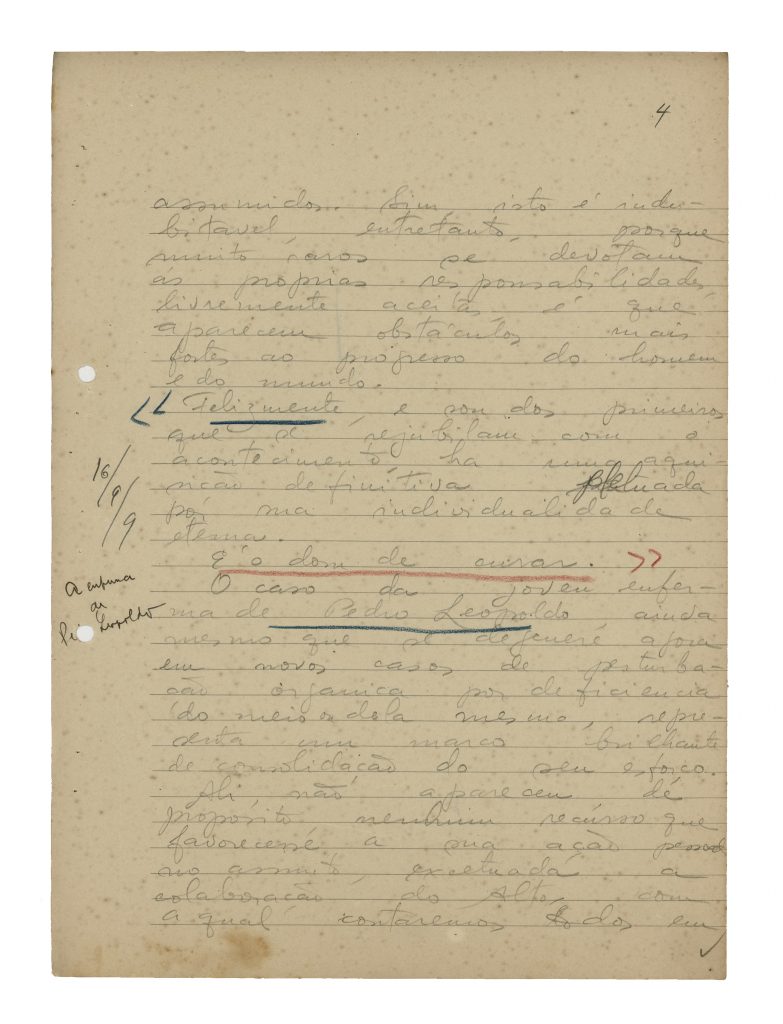 4
assumidos. Sim, isto é indu-
bitavel, entretanto, porque
muito raros se devotam
ás proprias responsabilidades
livremente aceitas, é que
aparecem obstáculos mais
fortes ao progresso do homem
e do mundo.
<< Felizmente, e sou dos primeiros
que se rejubilam com o
acontecimento, ha uma aqui-
sicão definitiva
por sua individualidade
eterna.
E' o dom de curar. >>
O caso da joven enfer-
ma de Pedro Leopoldo, ainda
mesmo que se degenere agora
em novos casos de perturba-
cão órganica por deficiencia
do meio ou dela mesma, repre-
senta um marco brilhante
de consolidacão do seu esforco.
Ali, não aparecen de
proposito nenhum recurso que
favorecesse a sua acão pessoal
no assunto, excetuada a
colaboracão do Alto, com
a qual contaremos todos em
16/9/9
A enferma
de
Leopoldo